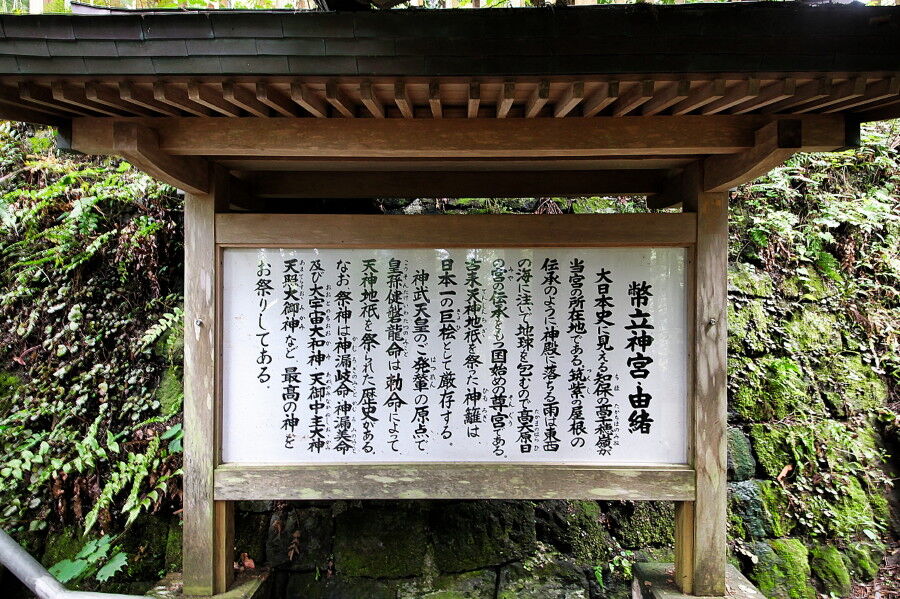 幣立神宮由緒
大日本史に見える知保の高天原嶽が
当宮の所在地である。筑紫の屋根の
伝承のように神殿に落ちる雨は東西
の海に注いで地球を包むので、高天原日
の宮の伝承をもつ国始めの尊宮である。
古来天神地祇を祭った神籬は
日本一の巨桧として厳存する。
神武天皇のご発輦の原点で
皇孫健磐龍命は勅命によって
天神地祇を祭られた歴史がある。
なお祭神は神漏岐命・神漏美命
及び大宇宙大和神・天御中主大神
天照大御神など、最高の神を
お祭りしてある。